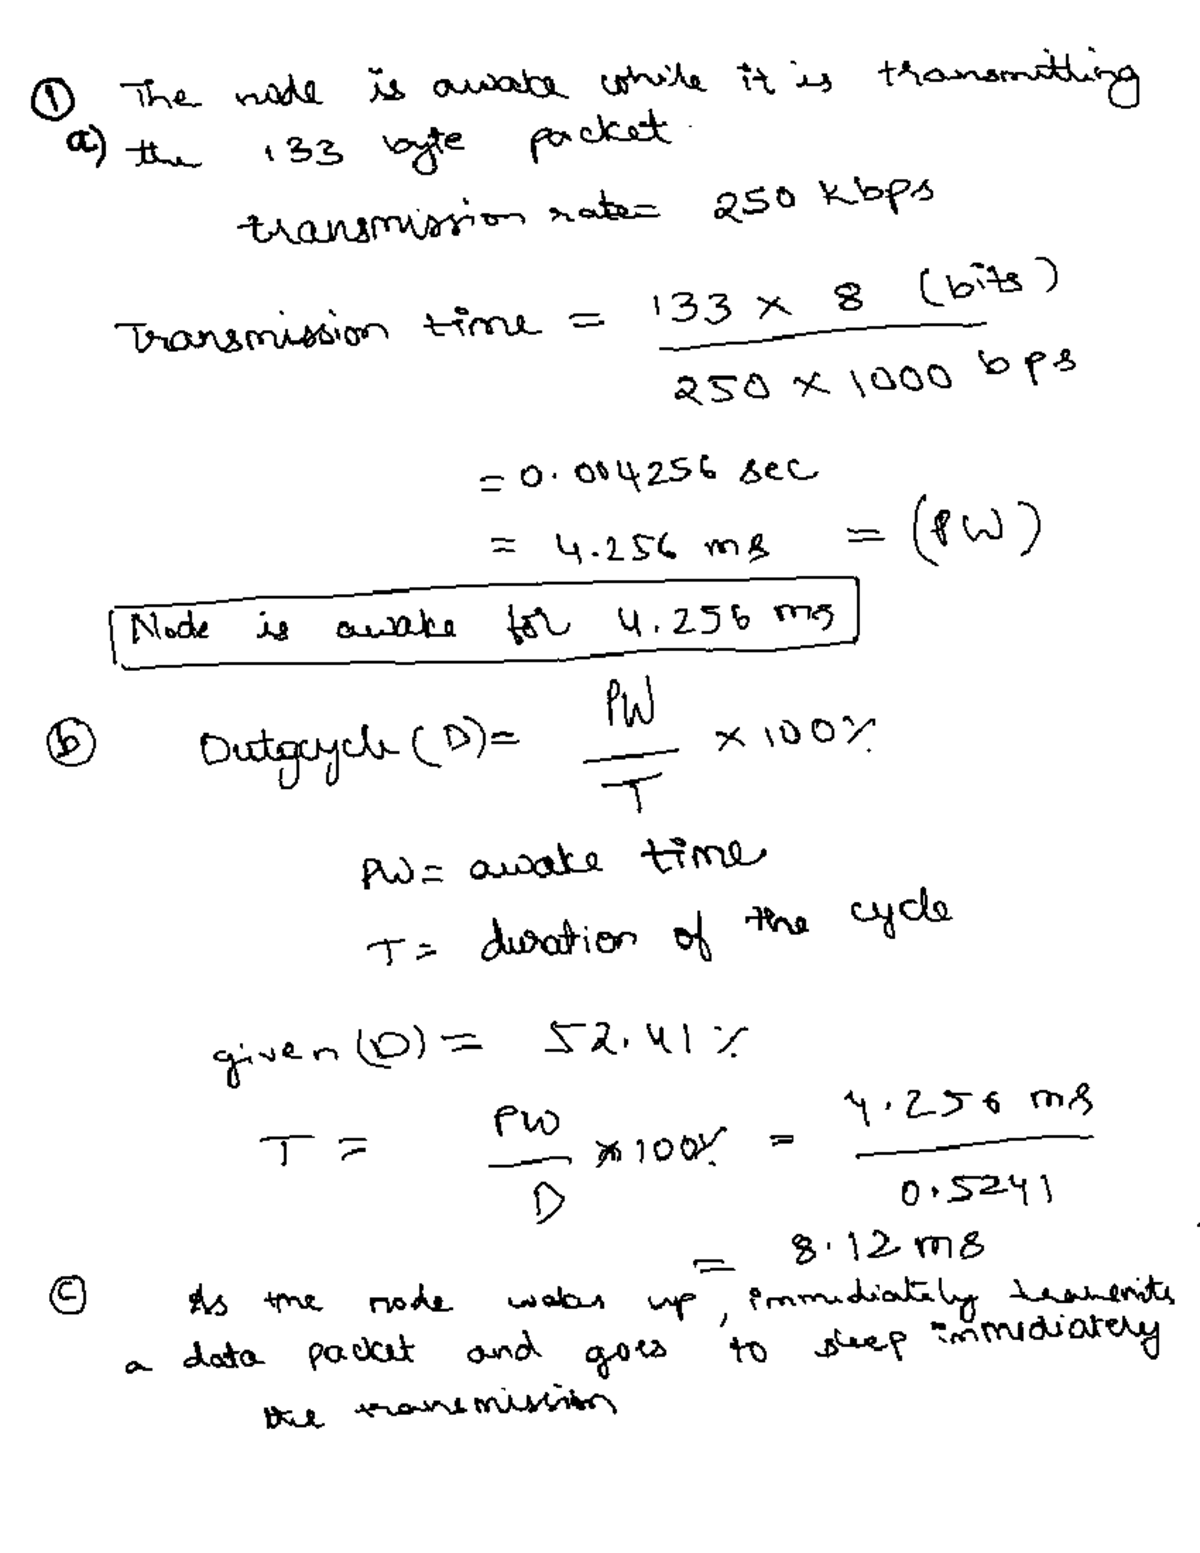 ① The node is awake while it is transmitting
a) the 133 byte packet.
transmission rate = 250 kbps
Transmission time = 133 × 8 (bits)
250 × 1000 bps
= 0.004256 sec
= 4.256 ms = (PW)
Node is awake for 4.256 ms
ⓑ Dutycycle (D) = PW × 100%
T
PW = awake time
T = duration of the cycle
given (D) = 52.41%
T = PW × 100% = 4.256 ms
D 0.5241
= 8.12 ms
ⓒ As the node wakes up, immediately transmits
a data packet and goes to sleep immediately
the transmission